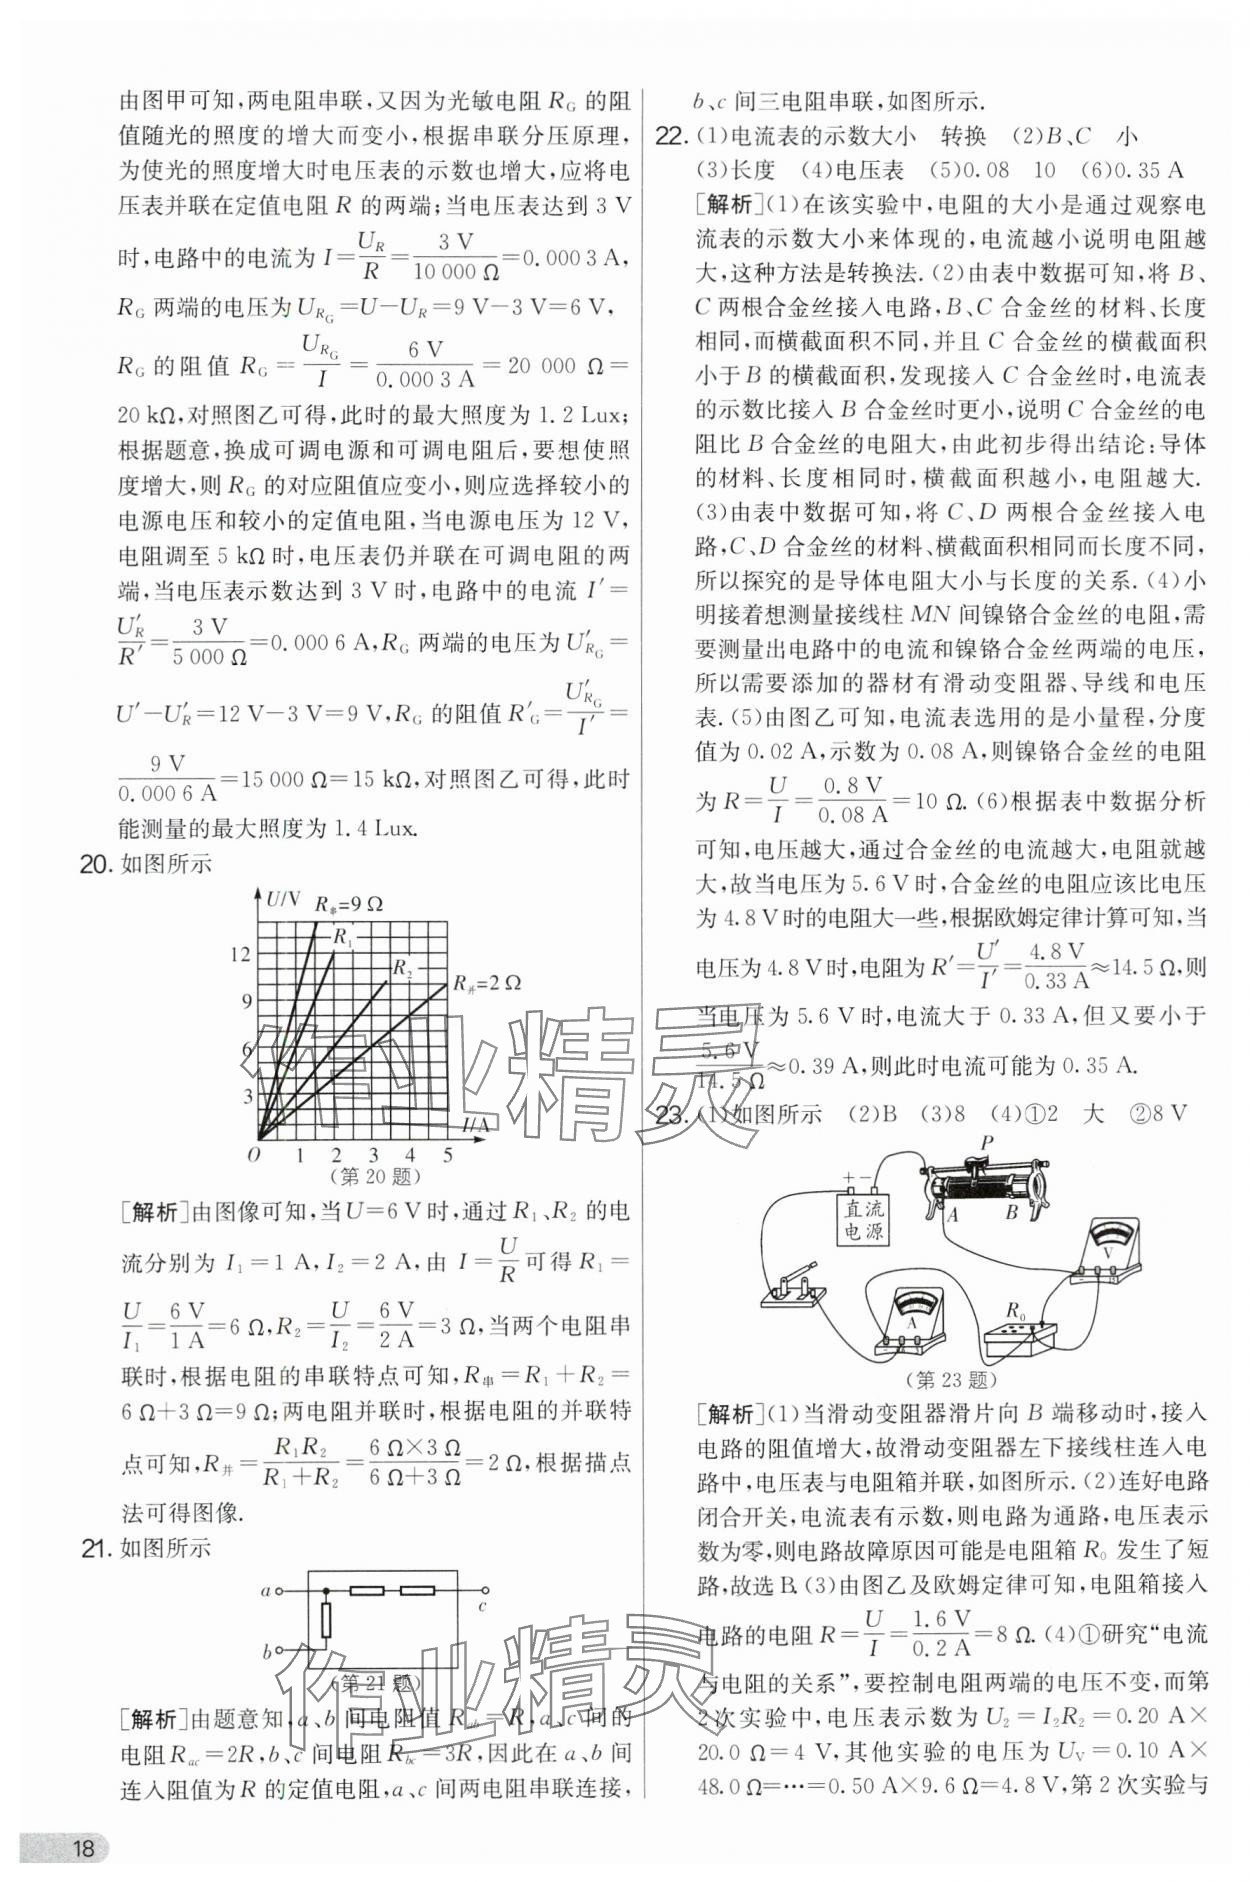 由图甲可知,两电阻串联,又因为光敏电阻 R_G 的阻
值随光的照度的增大而变小,根据串联分压原理,
为使光的照度增大时电压表的示数也增大,应将电
压表并联在定值电阻 R 的两端;当电压表达到 3 V
时,电路中的电流为 I=U_R/R=3 V/10 000 Ω=0.000 3 A,
R_G 两端的电压为 U_{R_G}=U−U_R=9 V−3 V=6 V,
R_G 的阻值 R_G=U_{R_G}/I=6 V/0.000 3 A=20 000 Ω=
20 kΩ,对照图乙可得,此时的最大照度为 1.2 Lux;
根据题意,换成可调电源和可调电阻后,要想使照
度增大,则 R_G 的对应阻值应变小,则应选择较小的
电源电压和较小的定值电阻,当电源电压为 12 V,
电阻调至 5 kΩ 时,电压表仍并联在可调电阻的两
端,当电压表示数达到 3 V 时,电路中的电流 I′=
U′_R/R′=3 V/5 000 Ω=0.000 6 A,R_G 两端的电压为 U′_{R_G}=
U′−U′_R=12 V−3 V=9 V,R_G 的阻值 R′_G=U′_{R_G}/I′=
9 V/0.000 6 A=15 000 Ω=15 kΩ,对照图乙可得,此时
能测量的最大照度为 1.4 Lux.
20. 如图所示
U/V R串=9 Ω
R₁
R₂
R并=2 Ω
12
9
6
3
I/A
O 1 2 3 4 5
(第 20 题)
[解析]由图像可知,当U=6 V时,通过 R₁、R₂ 的电
流分别为 I₁=1 A,I₂=2 A,由 I=U/R可得 R₁=
U/I₁=6 V/1 A=6 Ω,R₂=U/I₂=6 V/2 A=3 Ω,当两个电阻串
联时,根据电阻的串联特点可知,R串=R₁+R₂=
6 Ω+3 Ω=9 Ω;两电阻并联时,根据电阻的并联特
点可知,R并=R₁R₂/(R₁+R₂)=6 Ω×3 Ω/(6 Ω+3 Ω)=2 Ω,根据描点
法可得图像.
21. 如图所示
a
c
b
(第 21 题)
[解析]由题意知,a、b 间电阻值 R_ab=R,a、c 间的
电阻R_ac=2R,b、c 间电阻R_bc=3R,因此在 a、b 间
连入阻值为 R 的定值电阻,a、c 间两电阻串联连接,
18
b、c 间三电阻串联,如图所示.
22. (1)电流表的示数大小 转换 (2)B、C 小
(3)长度 (4)电压表 (5)0.08 10 (6)0.35 A
[解析](1)在该实验中,电阻的大小是通过观察电
流表的示数大小来体现的,电流越小说明电阻越
大,这种方法是转换法.(2)由表中数据可知,将 B、
C 两根合金丝接入电路,B、C 合金丝的材料、长度
相同,而横截面积不同,并且 C 合金丝的横截面积
小于 B 的横截面积,发现接入 C 合金丝时,电流表
的示数比接入 B 合金丝时更小,说明 C 合金丝的电
阻比 B 合金丝的电阻大,由此初步得出结论:导体
的材料、长度相同时,横截面积越小,电阻越大.
(3)由表中数据可知,将 C、D 两根合金丝接入电
路,C、D 合金丝的材料、横截面积相同而长度不同,
所以探究的是导体电阻大小与长度的关系.(4)小
明接着想测量接线柱 MN 间镍铬合金丝的电阻,需
要测量出电路中的电流和镍铬合金丝两端的电压,
所以需要添加的器材有滑动变阻器、导线和电压
表.(5)由图乙可知,电流表选用的是小量程,分度
值为 0.02 A,示数为 0.08 A,则镍铬合金丝的电阻
为 R=U/I=0.8 V/0.08 A=10 Ω.(6)根据表中数据分析
可知,电压越大,通过合金丝的电流越大,电阻就越
大,故当电压为 5.6 V 时,合金丝的电阻应该比电压
为 4.8 V时的电阻大一些,根据欧姆定律计算可知,当
电压为 4.8 V时,电阻为 R′=U′/I′=4.8 V/0.33 A≈14.5 Ω,则
当电压为 5.6 V 时,电流大于 0.33 A,但又要小于
5.6 V/14.5 Ω≈0.39 A,则此时电流可能为 0.35 A.
23. (1)如图所示 (2)B (3)8 (4)①2 大 ②8 V
P
+ −
直流
电源
A B
V
A
R₀
(第 23 题)
[解析](1)当滑动变阻器滑片向 B 端移动时,接入
电路的阻值增大,故滑动变阻器左下接线柱连入电
路中,电压表与电阻箱并联,如图所示.(2)连好电路
闭合开关,电流表有示数,则电路为通路,电压表示
数为零,则电路故障原因可能是电阻箱 R₀ 发生了短
路,故选 B.(3)由图乙及欧姆定律可知,电阻箱接入
电路的电阻 R=U/I=1.6 V/0.2 A=8 Ω.(4)①研究“电流
与电阻的关系”,要控制电阻两端的电压不变,而第
2 次实验中,电压表示数为 U₂=I₂R₂=0.20 A×
20.0 Ω=4 V,其他实验的电压为 U_V=0.10 A×
48.0 Ω=…=0.50 A×9.6 Ω=4.8 V,第 2 次实验与
作业精灵
作业精灵